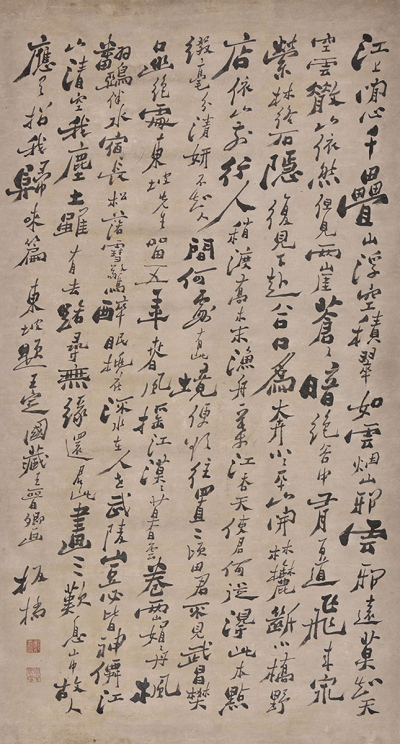 江上愁心千疊山浮空積翠如雲烟山邪雲邪遠莫知
空雲散山依然但見兩崖蒼蒼暗絕谷中有百道飛來泉
縈林絡石隱復見下赴谷口為奔川川平山開林麓斷小橋野
店依山前行人稍渡喬木末漁舟一葉江吞天使君何從得此本點
綴毫分清妍不知人間何處有此境便欲往置二頃田君不見武昌樊
口幽絕處東坡先生留五年春風搖江漠漠暮雲卷雨山娟娟丹楓
翻鴉伴水宿長松落雪驚醉眠桃花流水在人世武陵豈必皆神僊江
山清空我塵土雖有去路尋無緣還君此畫三歎息山中故人
應有招我歸來篇 東坡題王定國藏王晉卿畫 板橋